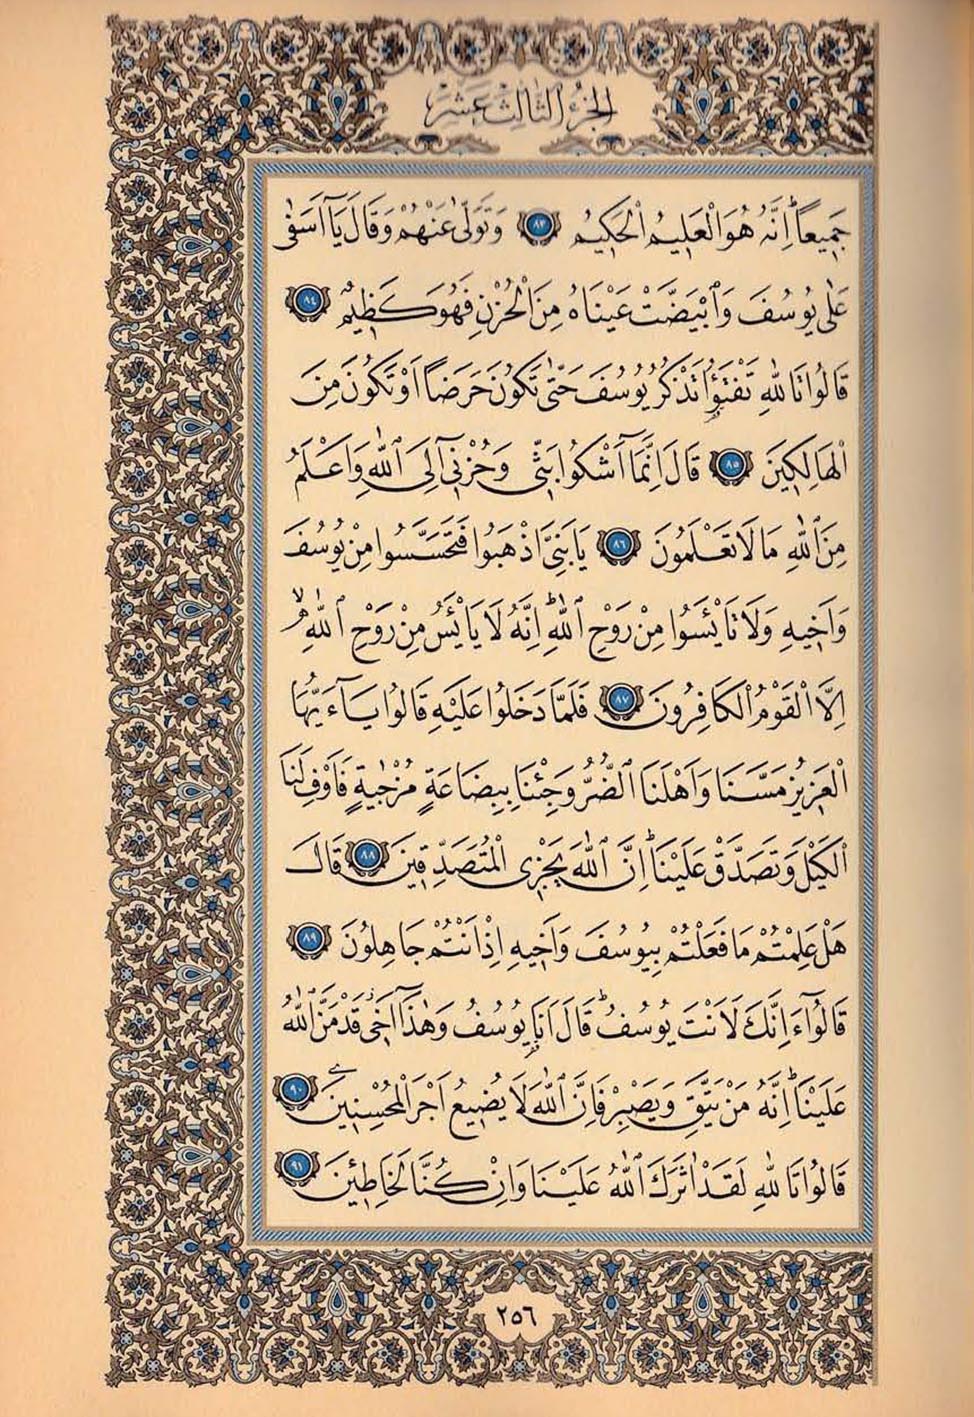 الجزء الثالث عشر
جَمِيعاًۜ اِنَّهُ هُوَ الْعَلِيمُ الْحَكِيمُ ﴿٨٣﴾ وَتَوَلّٰى عَنْهُمْ وَقَالَ يَٓا اَسَفٰى
عَلٰى يُوسُفَ وَابْيَضَّتْ عَيْنَاهُ مِنَ الْحُزْنِ فَهُوَ كَظِيمٌ ﴿٨٤﴾
قَالُوا تَاللّٰهِ تَفْتَؤُ۬ا تَذْكُرُ يُوسُفَ حَتّٰى تَكُونَ حَرَضاً اَوْ تَكُونَ مِنَ
الْهَالِكِينَ ﴿٨٥﴾ قَالَ اِنَّمَٓا اَشْكُوا بَثّٖي وَحُزْنٖٓي اِلَى اللّٰهِ وَاَعْلَمُ
مِنَ اللّٰهِ مَا لَا تَعْلَمُونَ ﴿٨٦﴾ يَا بَنِيَّ اذْهَبُوا فَتَحَسَّسُوا مِنْ يُوسُفَ
وَاَخٖيهِ وَلَا تَا۬يْـَٔسُوا مِنْ رَوْحِ اللّٰهِۜ اِنَّهُ لَا يَا۬يْـَٔسُ مِنْ رَوْحِ اللّٰهِ
اِلَّا الْقَوْمُ الْكَافِرُونَ ﴿٨٧﴾ فَلَمَّا دَخَلُوا عَلَيْهِ قَالُوا يَٓا ءَيُّهَا
الْعَزِيزُ مَسَّنَا وَاَهْلَنَا الضُّرُّ وَجِئْنَا بِبِضَاعَةٍ مُزْجٰيةٍ فَاَوْفِ لَنَا
الْكَيْلَ وَتَصَدَّقْ عَلَيْنَاۜ اِنَّ اللّٰهَ يَجْزِي الْمُتَصَدِّقِينَ ﴿٨٨﴾ قَالَ
هَلْ عَلِمْتُمْ مَا فَعَلْتُمْ بِيُوسُفَ وَاَخٖيهِ اِذْ اَنْتُمْ جَاهِلُونَ ﴿٨٩﴾
قَالُٓوا ءَاِنَّكَ لَاَنْتَ يُوسُفُۜ قَالَ اَنَا۬ يُوسُفُ وَهٰذَٓا اَخٖيۘ قَدْ مَنَّ اللّٰهُ
عَلَيْنَاۜ اِنَّهُ مَنْ يَتَّقِ وَيَصْبِرْ فَاِنَّ اللّٰهَ لَا يُضِيعُ اَجْرَ الْمُحْسِنِينَ ﴿٩٠﴾
قَالُوا تَاللّٰهِ لَقَدْ اٰثَرَكَ اللّٰهُ عَلَيْنَا وَاِنْ كُنَّا لَخَاطِـِٔينَ ﴿٩١﴾
٢٥٦